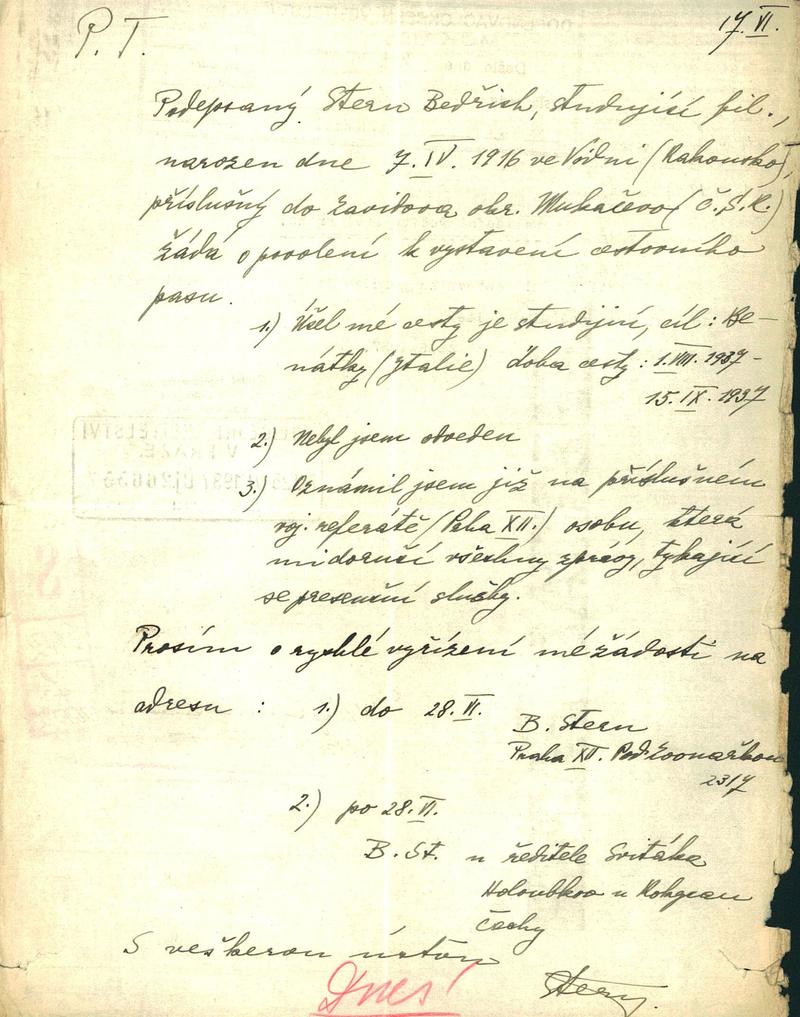 P. T.
17. VI.
Podepsaný Stern Bedřich, studující fil.,
narozen dne 7. IV. 1916 ve Vídni (Rakousko),
příslušný do Zavidova okr. Mukačevo (Č.S.R.)
žádá o povolení k vystavení cestovního
pasu.
1.) Účel mé cesty je studijní, cíl: Be-
nátky (Itálie) doba cesty: 1. VIII. 1937 -
15. IX. 1937
2.) Nebyl jsem odveden
3.) Oznámil jsem již na příslušném
voj. referátě (Praha XII.) osobu, která
mi doručí všechny zprávy, týkající
se presenční služby.
Prosím o rychlé vyřízení mé žádosti na
adresu: 1.) do 28. VI.
B. Stern
Praha XII. Pod Zvonařkou
2317
2.) po 28. VI.
B. St. u ředitele Svitáka
Holoubkov u Rokycan
Čechy
S veškerou úctou
Stern
Dnes!